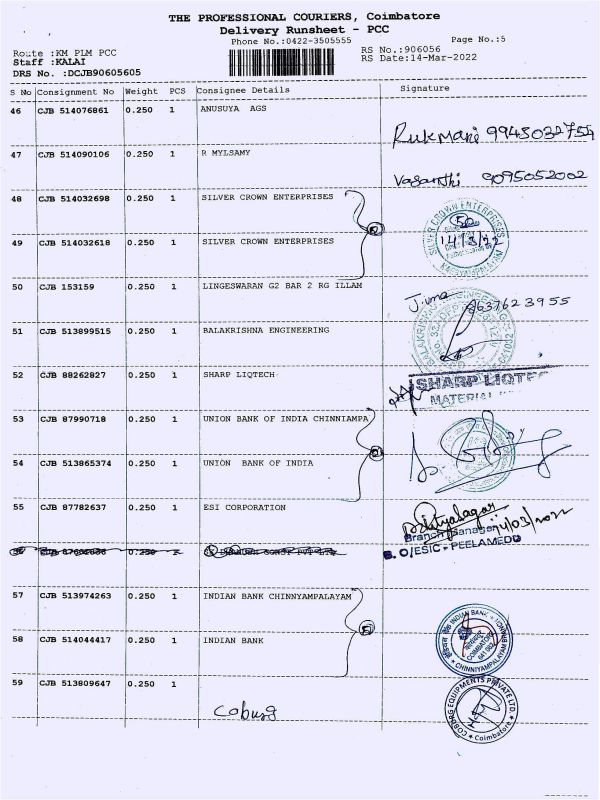 THE PROFESSIONAL COURIERS, Coimbatore
Delivery Runsheet - PCC
Phone No.:0422-3505555
Page No.:5
Route :KM PLM PCC
RS No.:906056
Staff :KALAI
RS Date:14-Mar-2022
DRS No. :DCJB90605605
S No Consignment No Weight PCS Consignee Details Signature
46 CJB 514076861 0.250 1 ANUSUYA AGS
Rukmani 9943032754
47 CJB 514090106 0.250 1 R MYLSAMY
Vasanthi 9095052002
48 CJB 514032698 0.250 1 SILVER CROWN ENTERPRISES
SILVER CROWN ENTERPRISES
14/3/22
49 CJB 514032618 0.250 1 SILVER CROWN ENTERPRISES
50 CJB 153159 0.250 1 LINGESWARAN G2 BAR 2 RG ILLAM
8637623955
51 CJB 513899515 0.250 1 BALAKRISHNA ENGINEERING
52 CJB 88262827 0.250 1 SHARP LIQTECH
SHARP LIQTE
MATERIAL
53 CJB 87990718 0.250 1 UNION BANK OF INDIA CHINNIAMPA
54 CJB 513865374 0.250 1 UNION BANK OF INDIA
55 CJB 87782637 0.250 1 ESI CORPORATION
14/03/2022
Branch Manager
B. O/ESIC - PEELAMEDU
57 CJB 513974263 0.250 1 INDIAN BANK CHINNYAMPALAYAM
INDIAN BANK
COIMBATORE
CHINNIYAMPALAYAM
58 CJB 514044417 0.250 1 INDIAN BANK
59 CJB 513809647 0.250 1
Coburg
COBORG EQUIPMENTS PRIVATE LTD.
Coimbatore